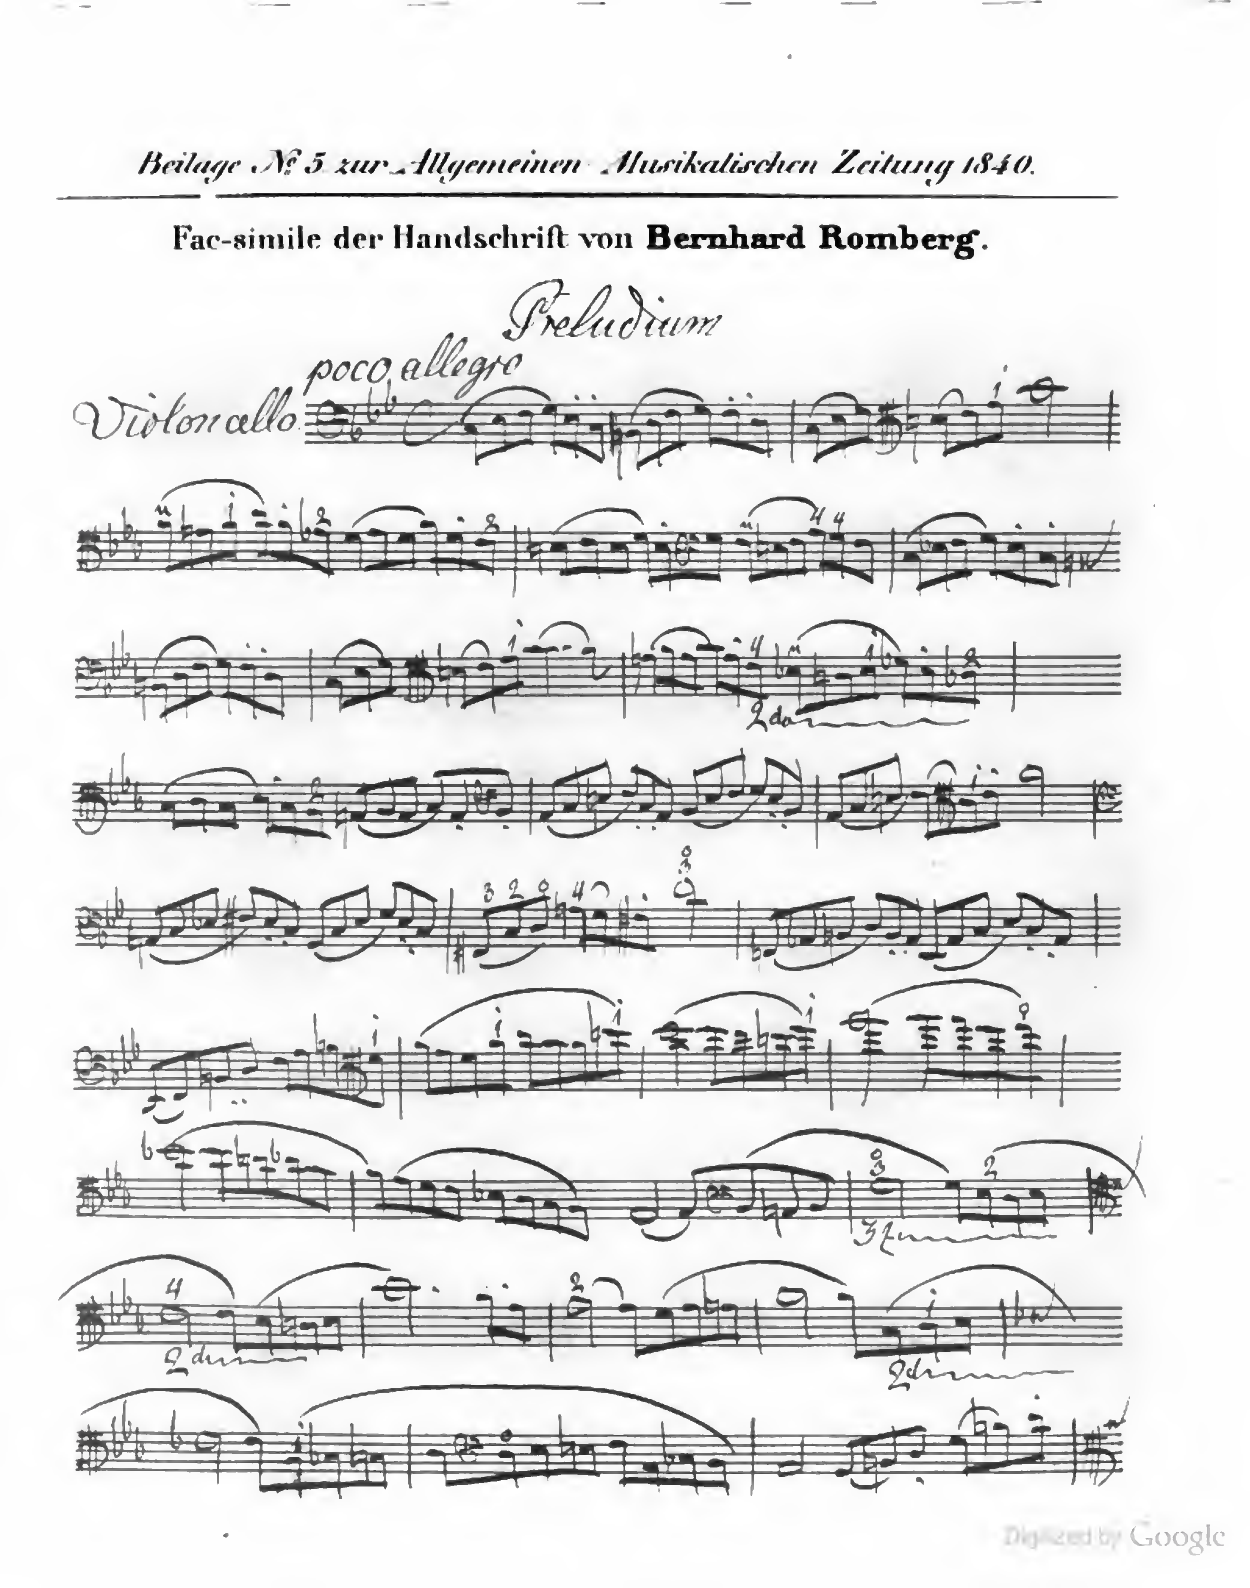 Beilage No 5 zur Allgemeinen Musikalischen Zeitung 1840.
Fac-simile der Handschrift von Bernhard Romberg.
Preludium
poco allegro
Violoncello
2da
3z
2da
2da
Digitized by Google